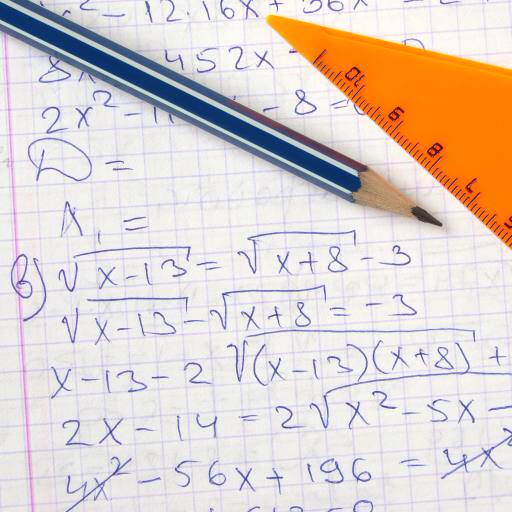 - 12.16x + 56x
8x 452x -
2x² - 11 - 8 =
D =
X₁ =
в) √(x-13) = √(x+8) - 3
√(x-13) - √(x+8) = -3
x-13-2 √((x-13)(x+8) +
2x - 14 = 2√(x² - 5x -
4x² - 56x + 196 = 4x²
10 9 8 7